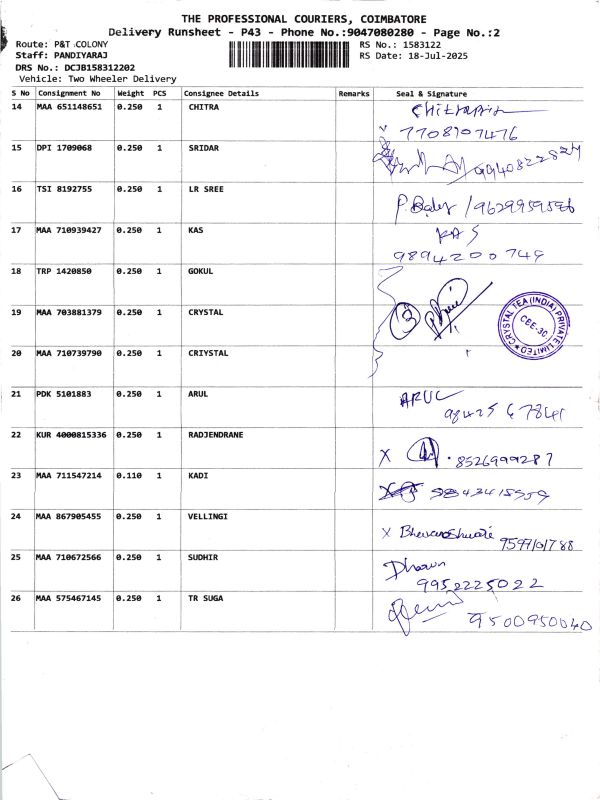 THE PROFESSIONAL COURIERS, COIMBATORE
Delivery Runsheet - P43 - Phone No.:9047080280 - Page No.:2
Route: P&T COLONY
Staff: PANDIYARAJ
DRS No.: DCJB158312202
Vehicle: Two Wheeler Delivery
RS No.: 1583122
RS Date: 18-Jul-2025
S No Consignment No Weight PCS Consignee Details Remarks Seal & Signature
14 MAA 651148651 0.250 1 CHITRA
7708107476
15 DPI 1709068 0.250 1 SRIDAR 9940822824
16 TSI 8192755 0.250 1 LR SREE
17 MAA 710939427 0.250 1 KAS KAS
9894200749
18 TRP 1420850 0.250 1 GOKUL
19 MAA 703881379 0.250 1 CRYSTAL
CRYSTAL TEA (INDIA) PRIVATE LIMITED
CBE-30.
20 MAA 710739790 0.250 1 CRIYSTAL
21 PDK 5101883 0.250 1 ARUL ARUL
98425 67841
22 KUR 4000815336 0.250 1 RADJENDRANE
X 8526999287
23 MAA 711547214 0.110 1 KADI
24 MAA 867905455 0.250 1 VELLINGI
X
25 MAA 710672566 0.250 1 SUDHIR
9952225022
26 MAA 575467145 0.250 1 TR SUGA
9500950040